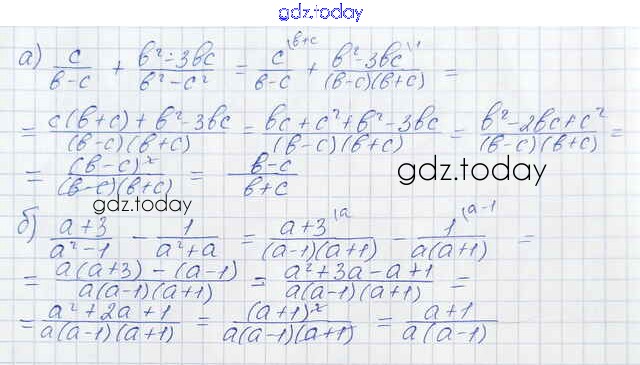 gdz.today
а) c/(b-c) + (b²-3bc)/(b²-c²) = c^{\b+c}/(b-c) + (b²-3bc)^{\1}/((b-c)(b+c)) =
= (c(b+c)+b²-3bc)/((b-c)(b+c)) = (bc+c²+b²-3bc)/((b-c)(b+c)) = (b²-2bc+c²)/((b-c)(b+c)) =
= (b-c)²/((b-c)(b+c)) = (b-c)/(b+c) gdz.today
gdz.today
б) (a+3)/(a²-1) - 1/(a²+a) = (a+3)^{\a}/((a-1)(a+1)) - 1^{\a-1}/(a(a+1)) =
= (a(a+3)-(a-1))/(a(a-1)(a+1)) = (a²+3a-a+1)/(a(a-1)(a+1)) =
= (a²+2a+1)/(a(a-1)(a+1)) = (a+1)²/(a(a-1)(a+1)) = (a+1)/(a(a-1))